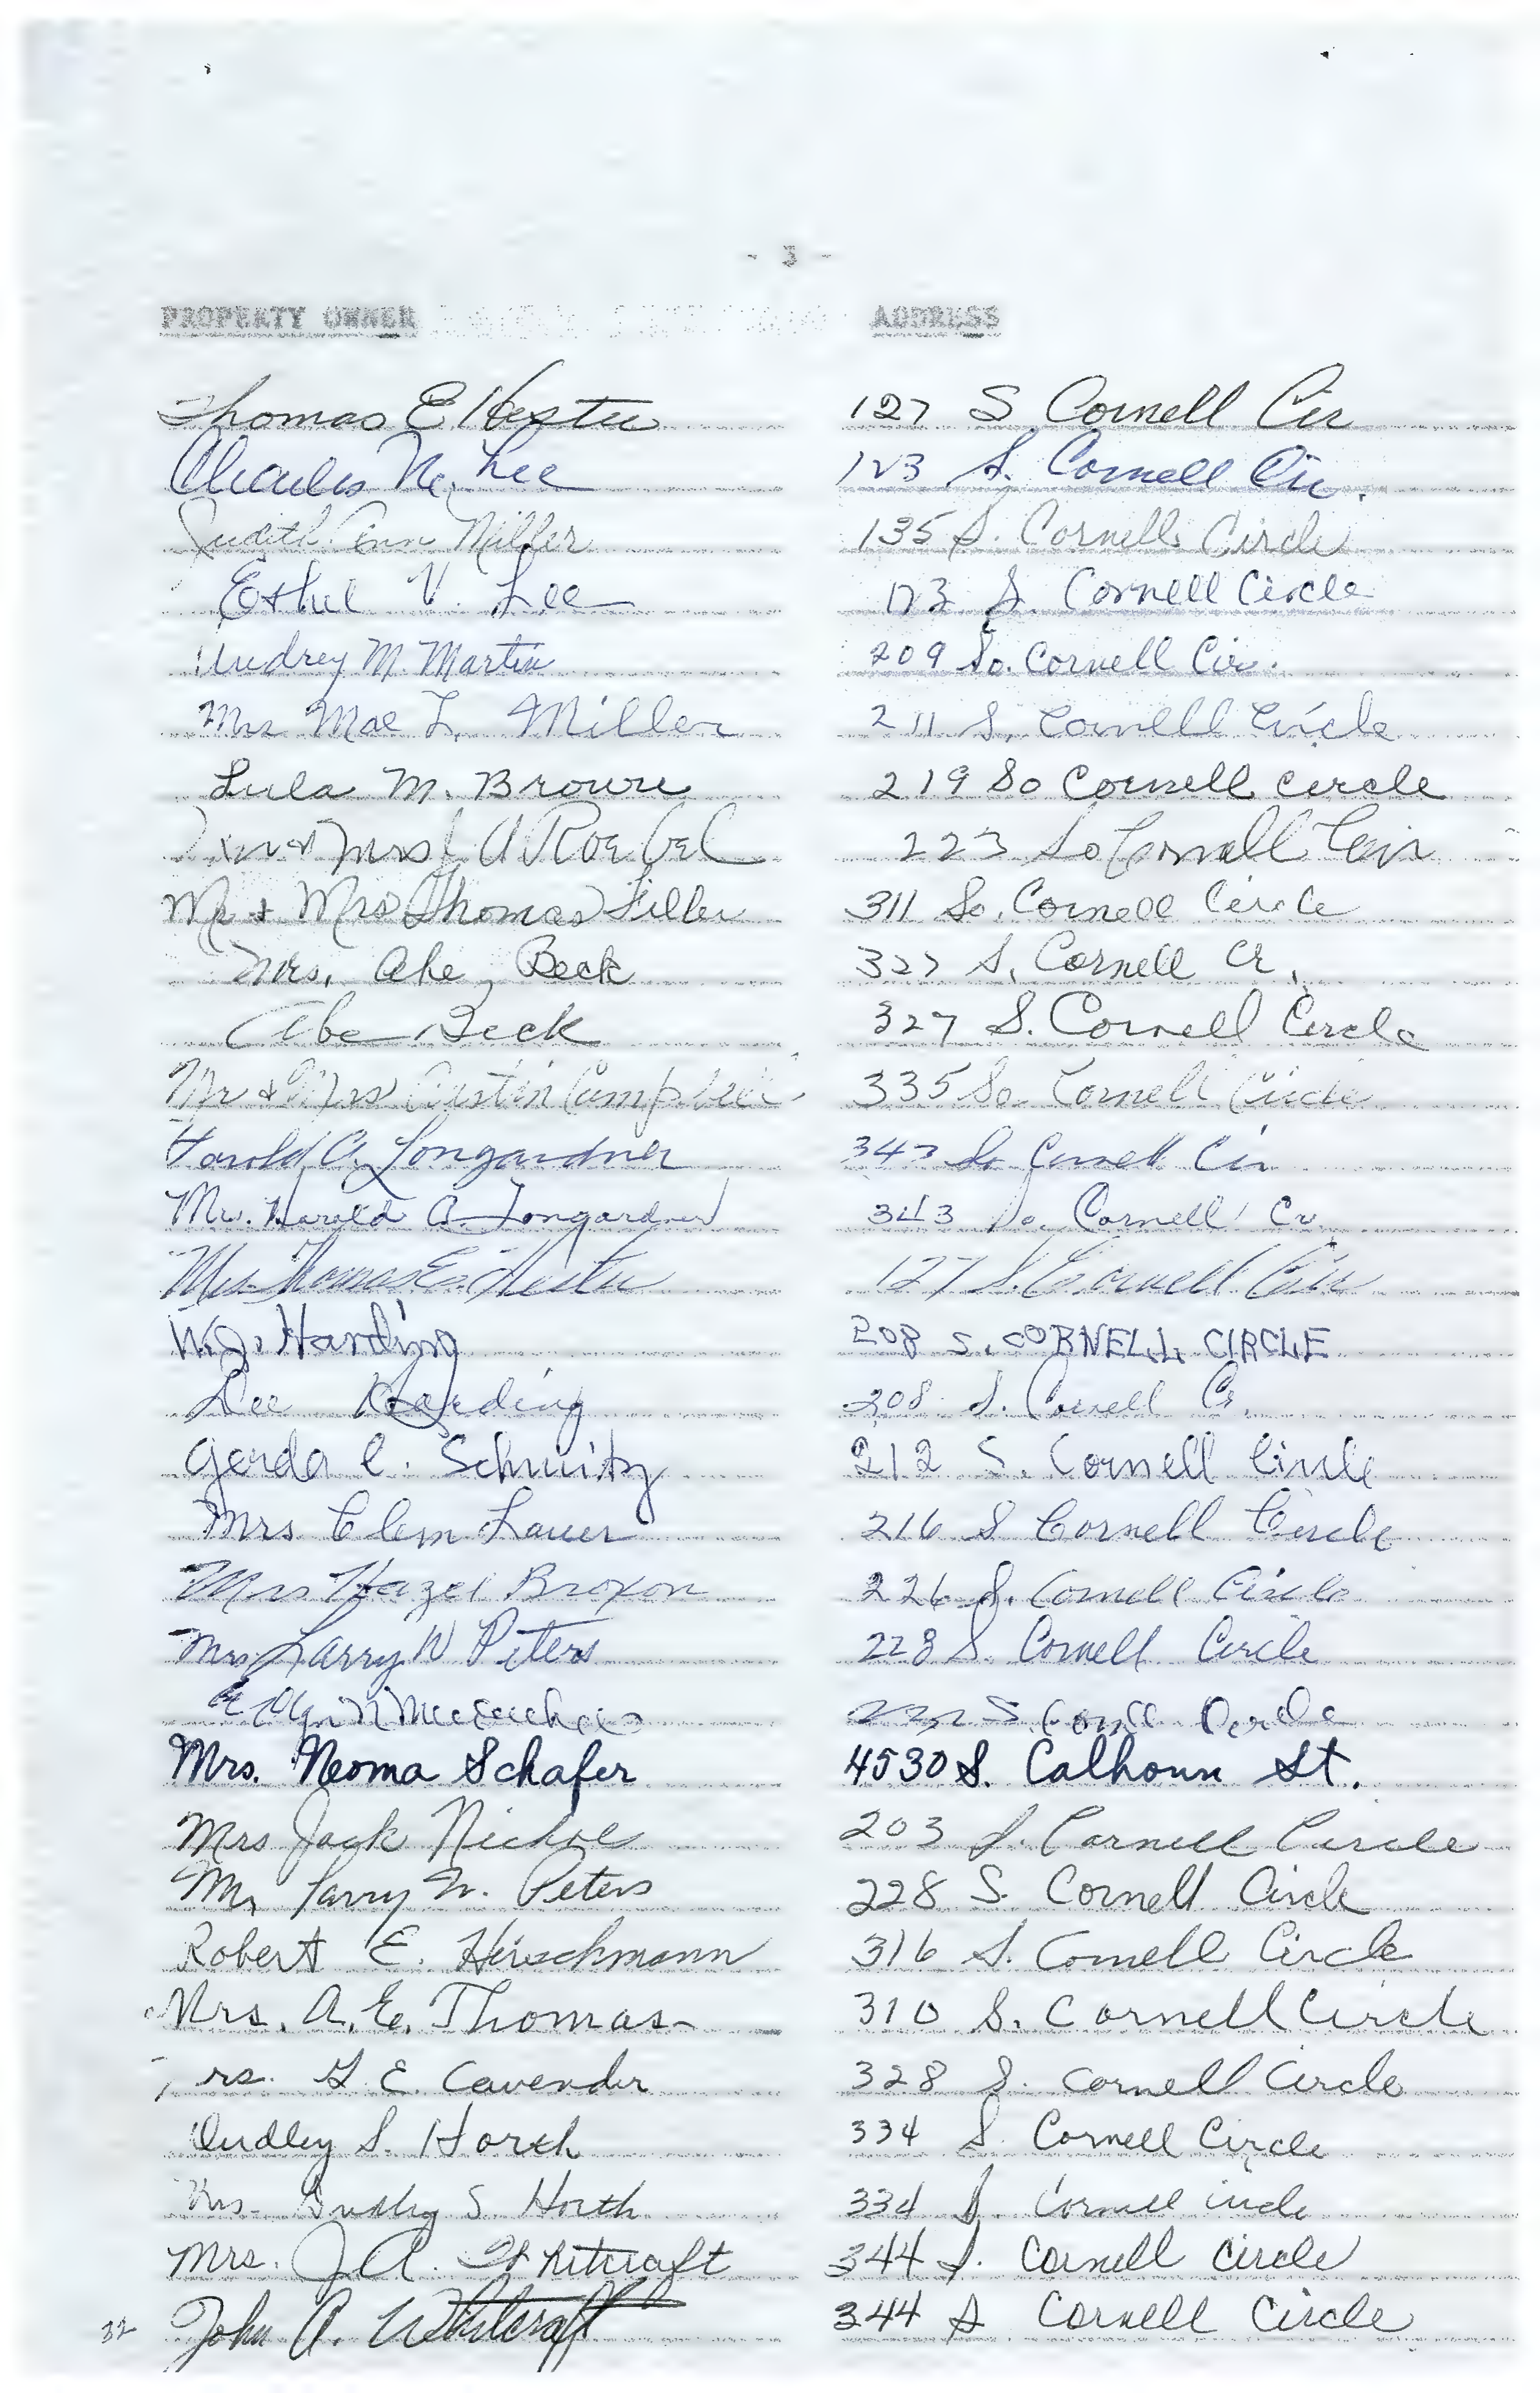 - 3 -
PROPERTY OWNER ADDRESS
Thomas E Hester 127 S Cornell Cir
Charles N. Lee 123 S. Cornell Cir.
Judith Ann Miller 135 S. Cornell Circle
Ethel V. Lee 123 S. Cornell Circle
Audrey M. Martin 209 So. Cornell Cir.
Mrs Mae L. Miller 211 S. Cornell Circle
Lula M. Brown 219 So Cornell circle
Mrs 223 So Cornell Cir
Mr & Mrs Thomas Filler 311 So. Cornell Circle
Mrs. Abe Beck 327 S. Cornell Cr.
Abe Beck 327 S. Cornell Circle
Mr & Mrs Austin Campbell 335 So Cornell Circle
Harold A. Longardner 343 So Cornell Cir
Harold A. Longardner 343 So. Cornell Cir
Mrs Thomas E. Hester 127 S. Cornell Cir
W.J. Harding 208 S. CORNELL CIRCLE
Dee Harding 208 S. Cornell Cr.
Gerda C. Schmitz 212 S. Cornell Circle
Mrs Clem Lauer 216 S Cornell Circle
Mrs Hazel Broxon 226 S. Cornell Circle
Mrs Larry W Peters 228 S. Cornell Circle
S. Cornell Circle
Mrs. Neoma Schafer 4530 S. Calhoun St.
Mrs Jack Nichols 203 S. Cornell Circle
Mr Larry W. Peters 228 S. Cornell Circle
Robert E. Hirschmann 316 S. Cornell Circle
Mrs. A. E. Thomas 310 S. Cornell Circle
rs. G. E. Cavender 328 S. Cornell Circle
Dudley S. Horth 334 S. Cornell Circle
Mrs. Dudley S. Horth 334 S. Cornell ircle
Mrs. J. A. Whitcraft 344 S. Cornell Circle
32 John A. Whitcraft 344 S Cornell Circle